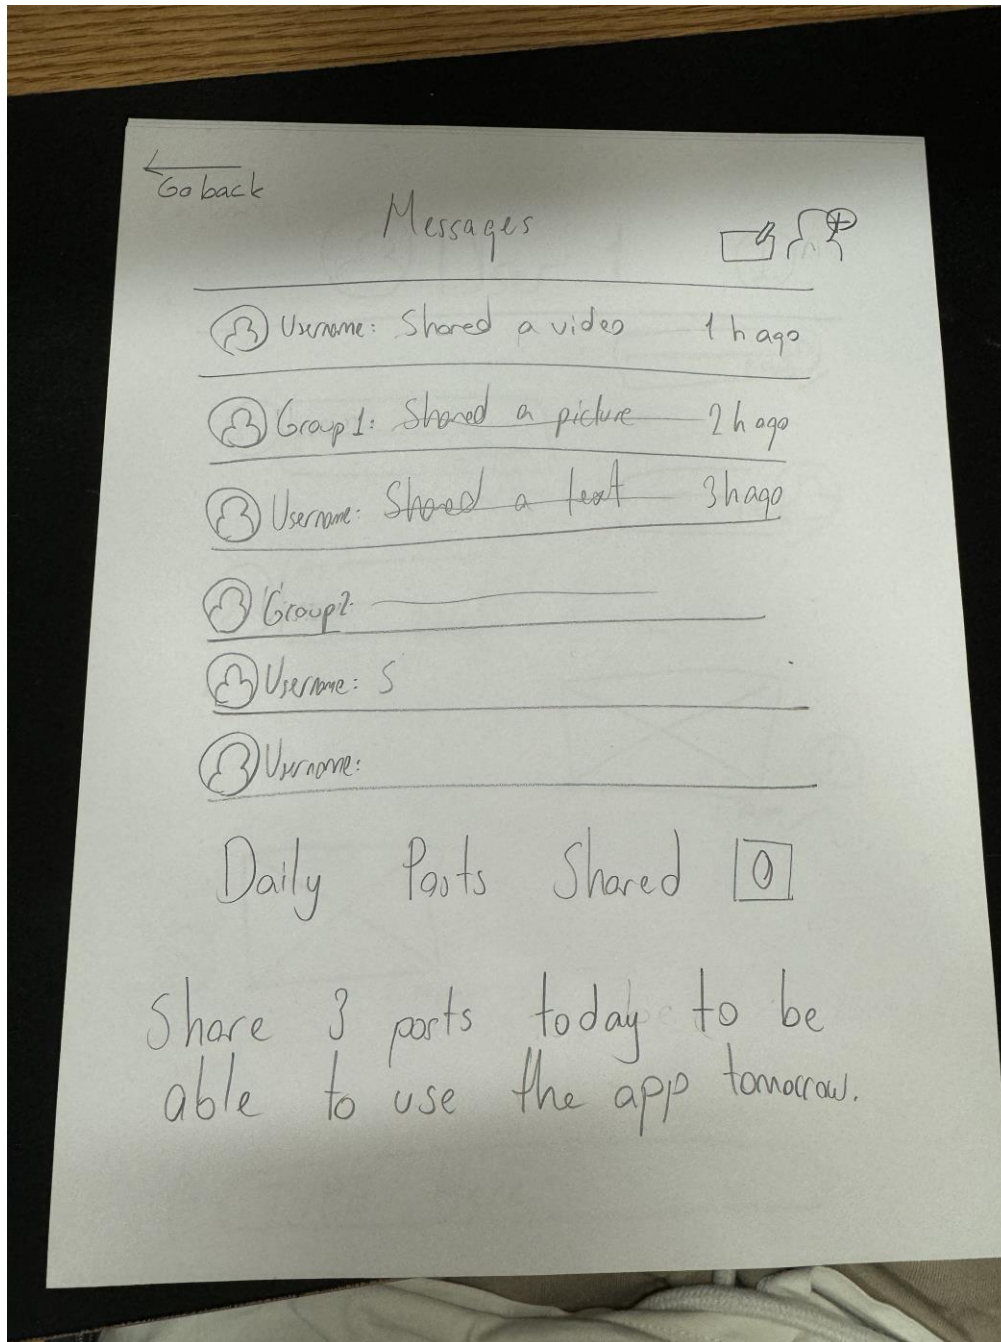 Go back
Messages
Username: Shared a video 1 h ago
Group 1: Shared a picture 2 h ago
Username: Shared a text 3 h ago
Group 2:
Username: S
Username:
Daily Posts Shared 0
Share 3 posts today to be
able to use the app tomorrow.